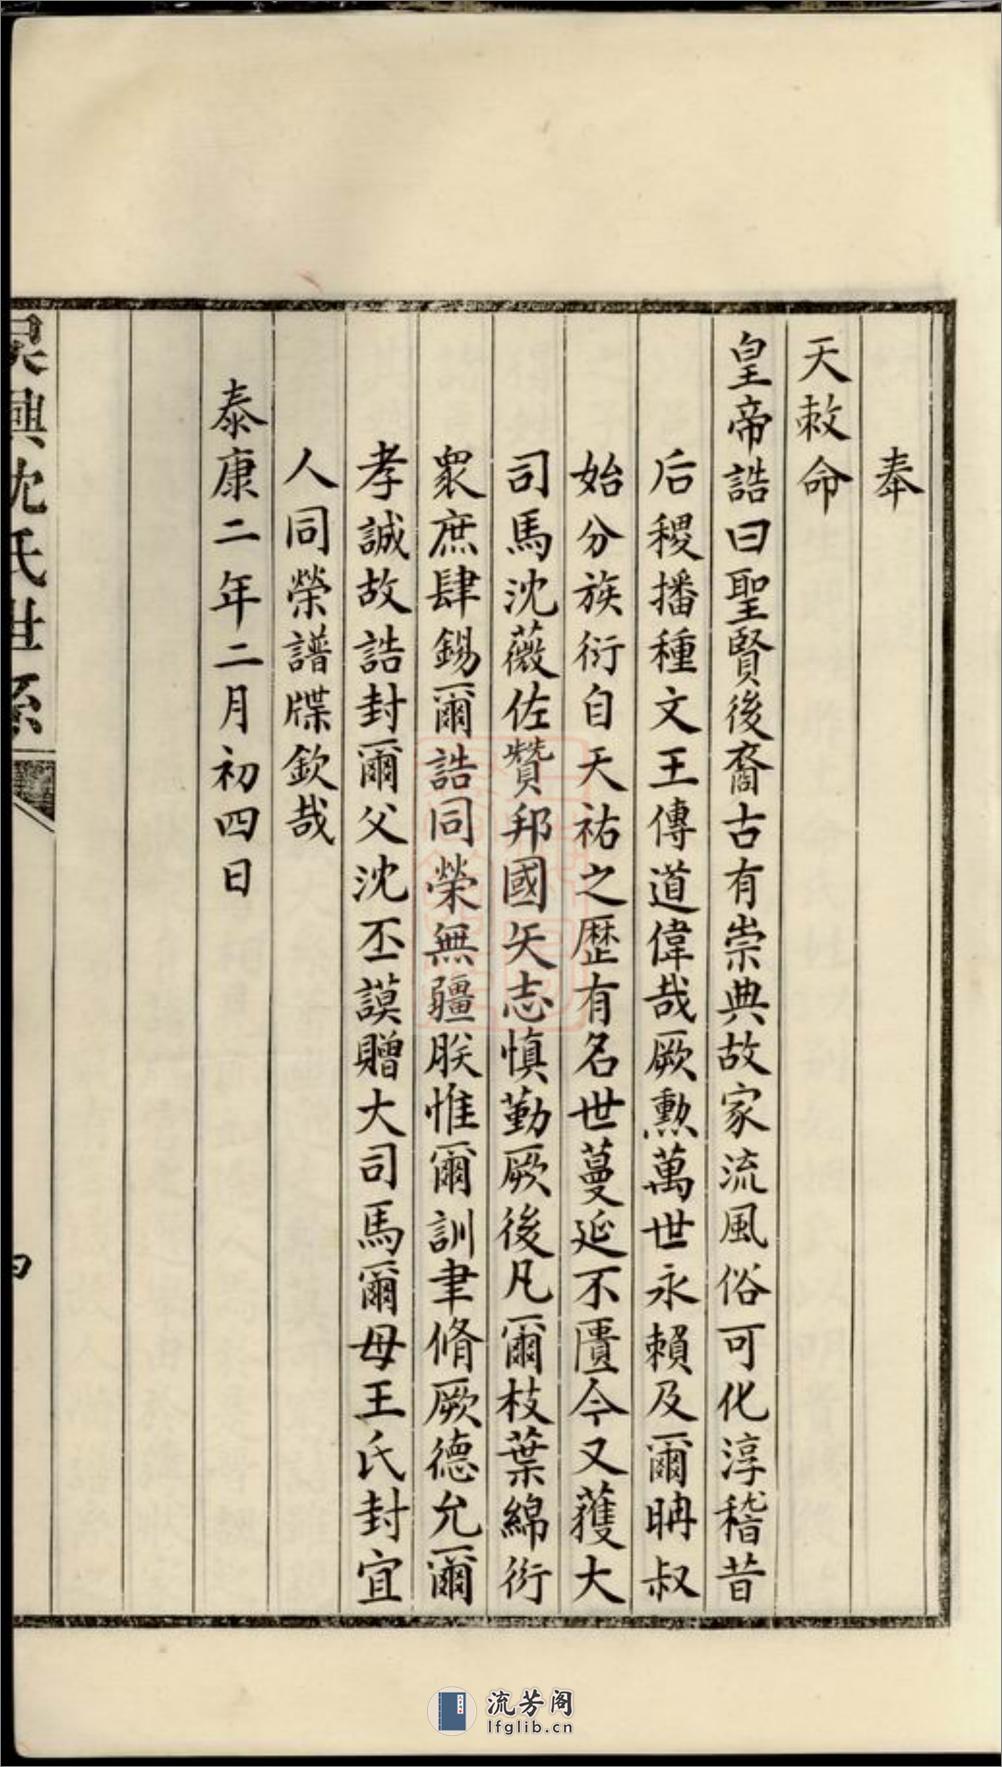 奉
天敕命
皇帝誥曰聖賢後裔古有崇典故家流風俗可化淳稽昔
后稷播種文王傳道偉哉厥勲萬世永賴及爾聃叔
始分族衍自天祐之歴有名世蔓延不匱今又獲大
司馬沈薇佐贊邦國矢志慎勤厥後凡爾枝葉綿衍
衆庶肆錫爾誥同榮無疆朕惟爾訓聿脩厥德允爾
孝誠故誥封爾父沈丕謨贈大司馬爾母王氏封宜
人同榮譜牒欽哉
泰康二年二月初四日
吳興沈氏世系
四
流芳阁
lfglib.cn